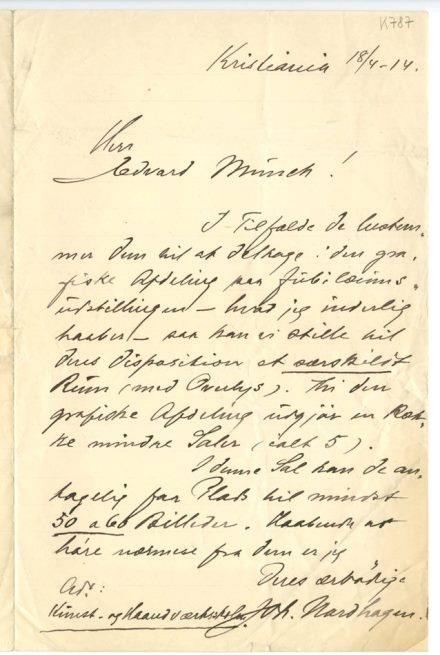 K787
Kristiania 18/4-14.
Herr
Edvard Munch!
I Tilfælde De bestem-
mer Dem til at deltage i den gra-
fiske Afdeling paa Jubilæums-
udstillingen – hvad jeg inderlig
haaber – saa kan vi stille til
Deres Disposition et særskildt
Rum (med Overlys). Thi den
grafiske Afdeling udgjør en Ræk-
ke mindre Saler (ialt 5).
I denne Sal kan De an-
tagelig faa Plads til mindst
50 a 60 Billeder. Haabende at
høre nærmere fra Dem er jeg
Deres ærbødige
Adr:
Kunst- og Haandværksskolen Joh. Nordhagen.